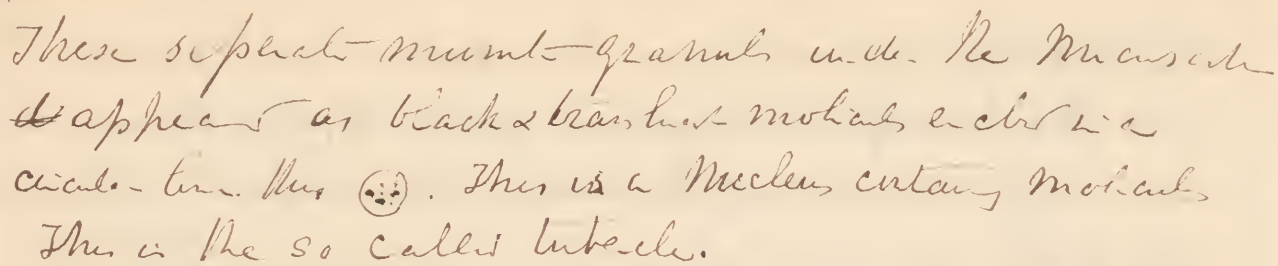 These seperate minute granules under the Microscope
appear as black & translucent molicules enclosed in a
circular form thus . This is a Nucleus containing Molicules
This is the so called tubercle.